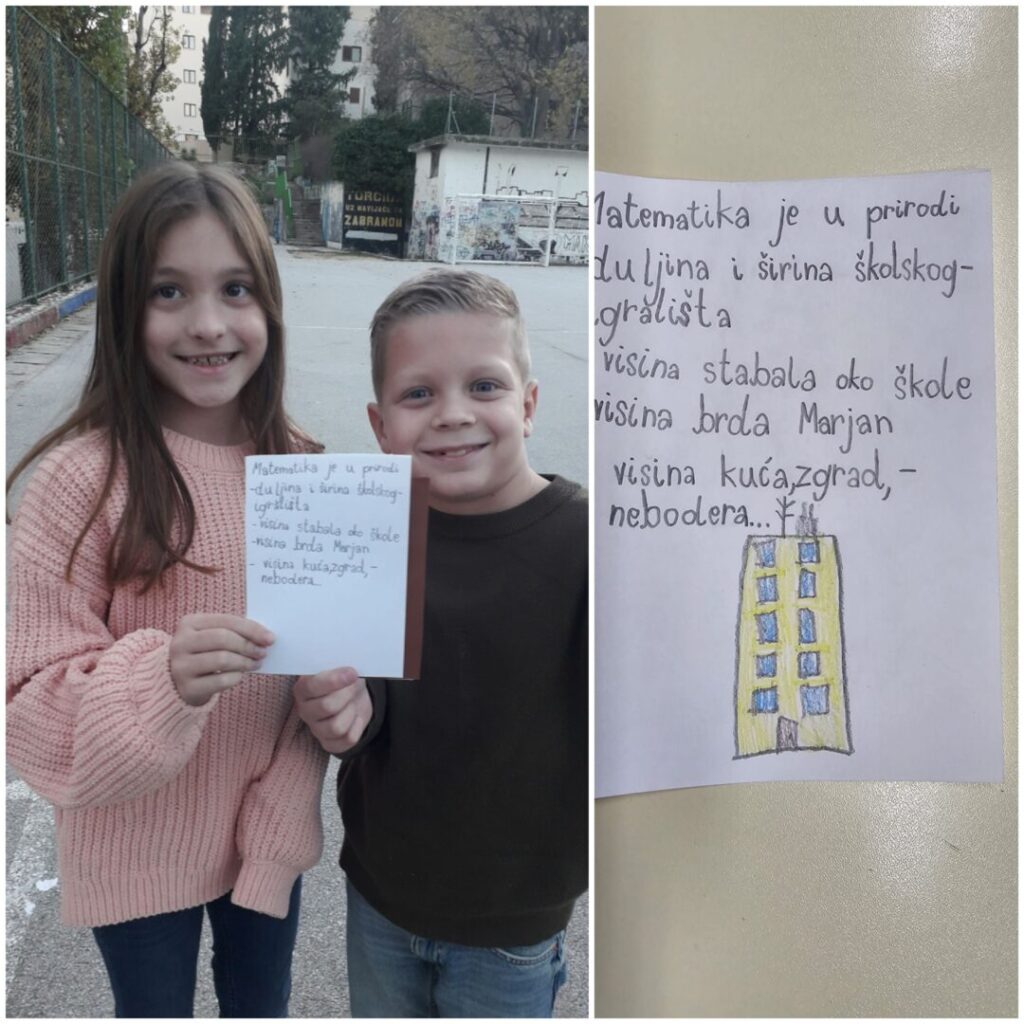 TORCIDA
ZABRANOM
Matematika je u prirodi
-duljina i širina školskog-
igrališta
-visina stabala oko škole
-visina brda Marjan
- visina kuća,zgrad,-
nebodera...
Matematika je u prirodi
duljina i širina školskog-
igrališta
visina stabala oko škole
visina brda Marjan
visina kuća,zgrad,-
nebodera...